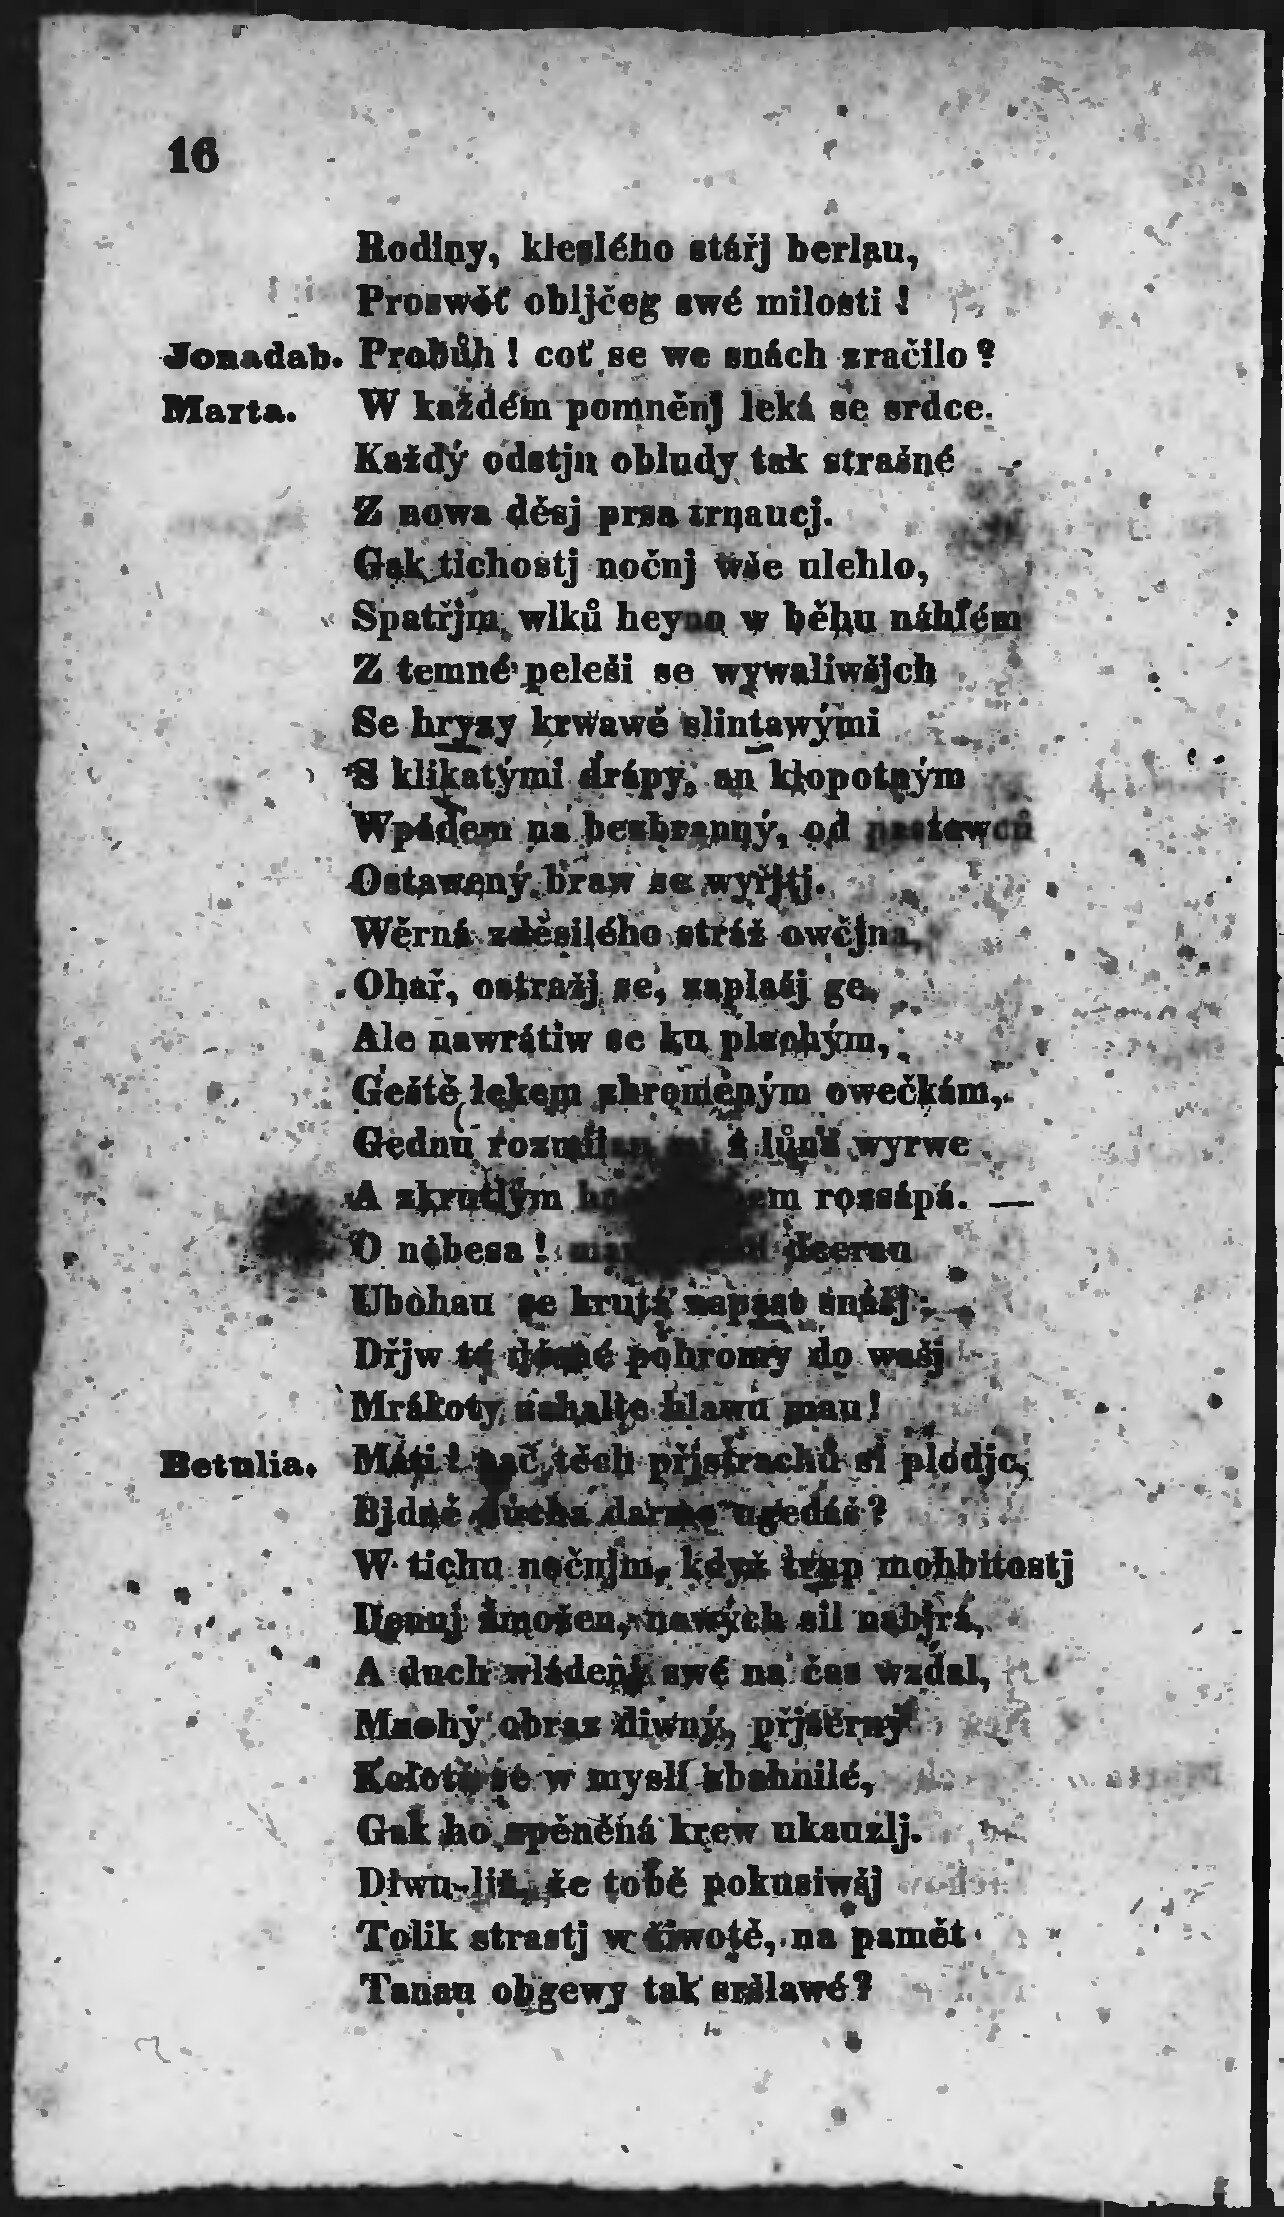 16
Rodiny, kleslého stářj berlau,
Proswěť obljčeg swé milosti !
Jonadab. Probůh ! coť se we snách zračilo ?
Marta. W každém pomněnj leká se srdce.
Každý odstjn obludy tak strašné
Z nowa děsj prsa trnaucj.
Gak tichostj nočnj wše ulehlo,
Spatřjm wlků heyno w běhu náhlém
Z temné peleši se wywaliwšjch
Se hryzy krwawě slintawými
S klikatými drápy, an klopotným
Wpádem na bezbranný, od pastewců
Ostawený braw se wyřjtj.
Wěrná zděsilého stráž owčjna,
Ohař, ostražj se, zaplašj ge
Ale nawrátiw se ku plachým,
Geště lekem zhroměným owečkám,
Gednu rozmilau mi z lůna wyrwe
A zkrutlým em rozsápá. —
O nebesa ! dcerau
Ubohau se krutá napast snášj ;
Dřjw té děsné pohromy do wašj
Mrákoty zahalte hlawu mau !
Betulia. Máti ! nač těch přjstrachů si plodjc,
Bjdně ducha darmo ugedáš ?
W tichu nočnjm, když trup mohbitostj
Dennj zmožen, nowých sil nabjrá,
A duch wládenj swé na čas wzdal,
Mnohý obraz diwný, přjšerný
Kolotá se w mysli zbahnilé,
Gak ho zpěněná krew ukauzlj.
Diwu-liž, že tobě pokusiwšj
Tolik strastj w žiwotě, na pamět
Tanau obgewy tak sršlawé ?